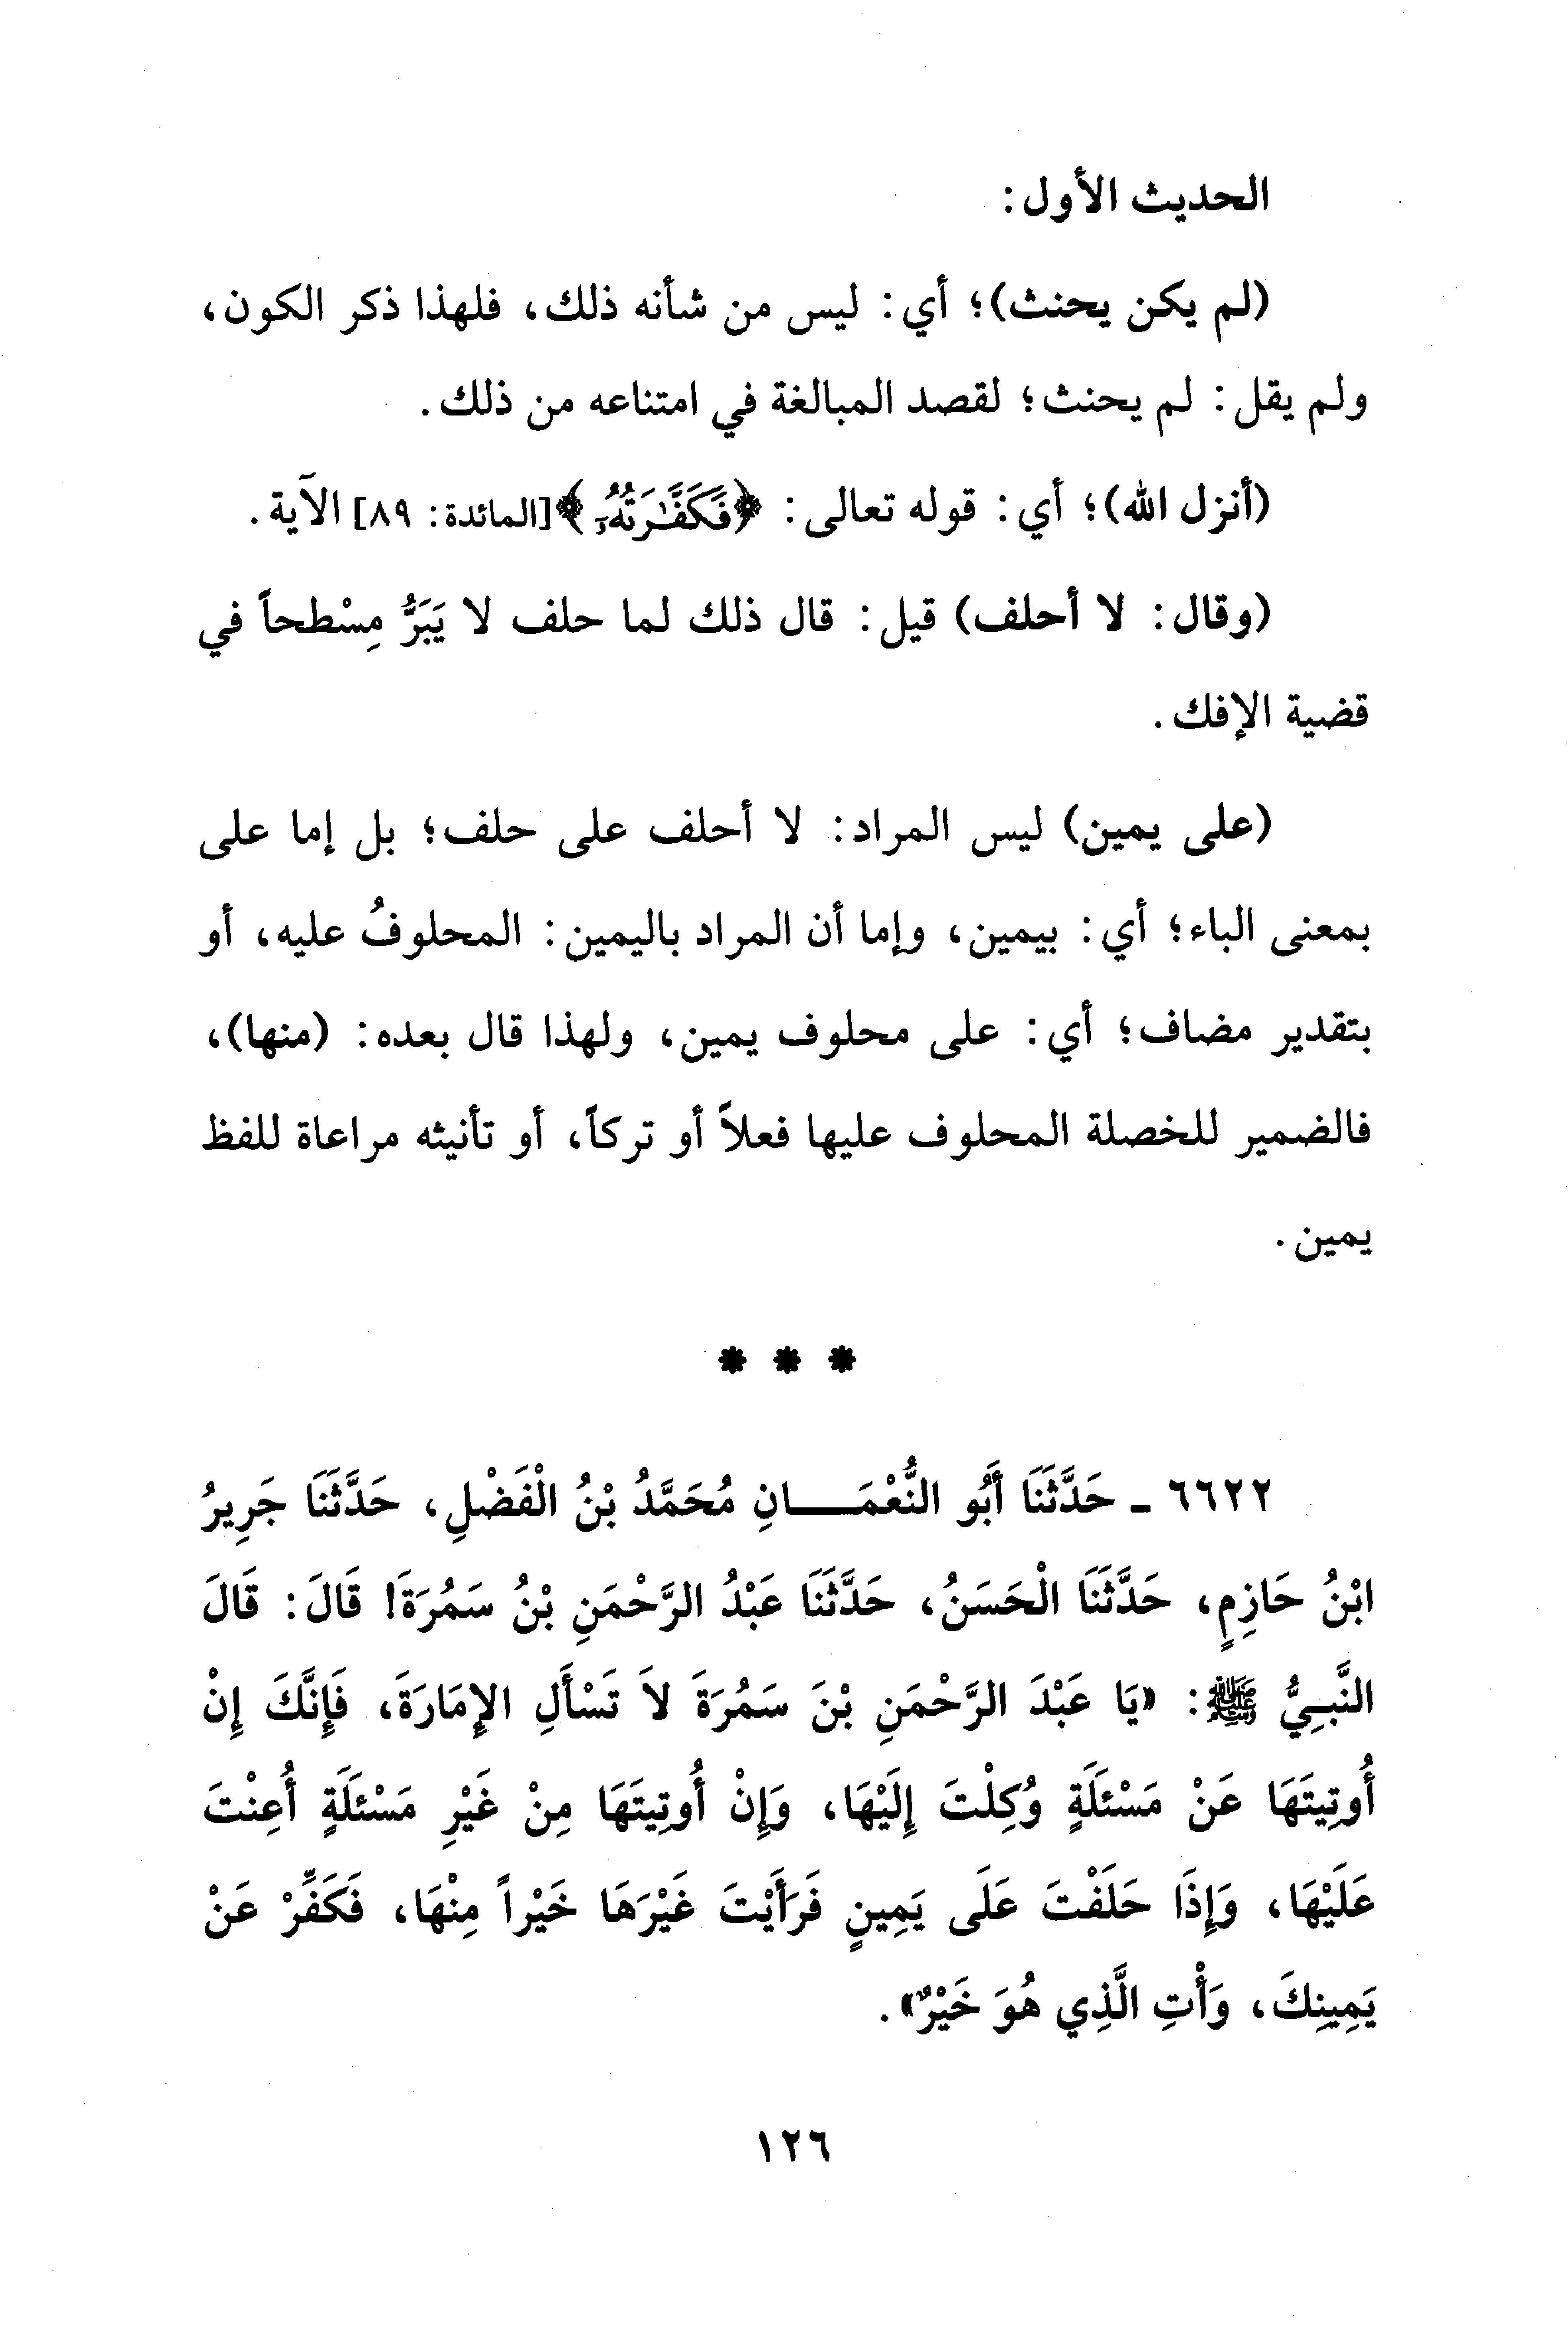 الحديث الأول:
(لم يكن يحنث)؛ أي: ليس من شأنه ذلك، فلهذا ذكر الكون،
ولم يقل: لم يحنث؛ لقصد المبالغة في امتناعه من ذلك.
(أنزل الله)؛ أي: قوله تعالى: ﴿فَكَفَّٰرَتُهُۥٓ﴾[المائدة: ٨٩] الآية.
(وقال: لا أحلف) قيل: قال ذلك لما حلف لا يَبَرُّ مِسْطحاً في
قضية الإفك.
(على يمين) ليس المراد: لا أحلف على حلف؛ بل إما على
بمعنى الباء؛ أي: بيمين، وإما أن المراد باليمين: المحلوفُ عليه، أو
بتقدير مضاف؛ أي: على محلوف يمين، ولهذا قال بعده: (منها)،
فالضمير للخصلة المحلوف عليها فعلاً أو تركاً، أو تأنيثه مراعاة للفظ
يمين.
* * *
٦٦٢٢ - حَدَّثَنَا أَبُو النُّعْمَـــانِ مُحَمَّدُ بْنُ الْفَضْلِ، حَدَّثَنَا جَرِيرُ
ابْنُ حَازِمٍ، حَدَّثَنَا الْحَسَنُ، حَدَّثَنَا عَبْدُ الرَّحْمَنِ بْنُ سَمُرَةَ! قَالَ: قَالَ
النَّبِيُّ ﷺ: «يَا عَبْدَ الرَّحْمَنِ بْنَ سَمُرَةَ لاَ تَسْأَلِ الإِمَارَةَ، فَإِنَّكَ إِنْ
أُوتِيتَهَا عَنْ مَسْئَلَةٍ وُكِلْتَ إِلَيْهَا، وَإِنْ أُوتِيتَهَا مِنْ غَيْرِ مَسْئَلَةٍ أُعِنْتَ
عَلَيْهَا، وَإِذَا حَلَفْتَ عَلَى يَمِينٍ فَرَأَيْتَ غَيْرَهَا خَيْراً مِنْهَا، فَكَفِّرْ عَنْ
يَمِينِكَ، وَأْتِ الَّذِي هُوَ خَيْرٌ».
١٢٦